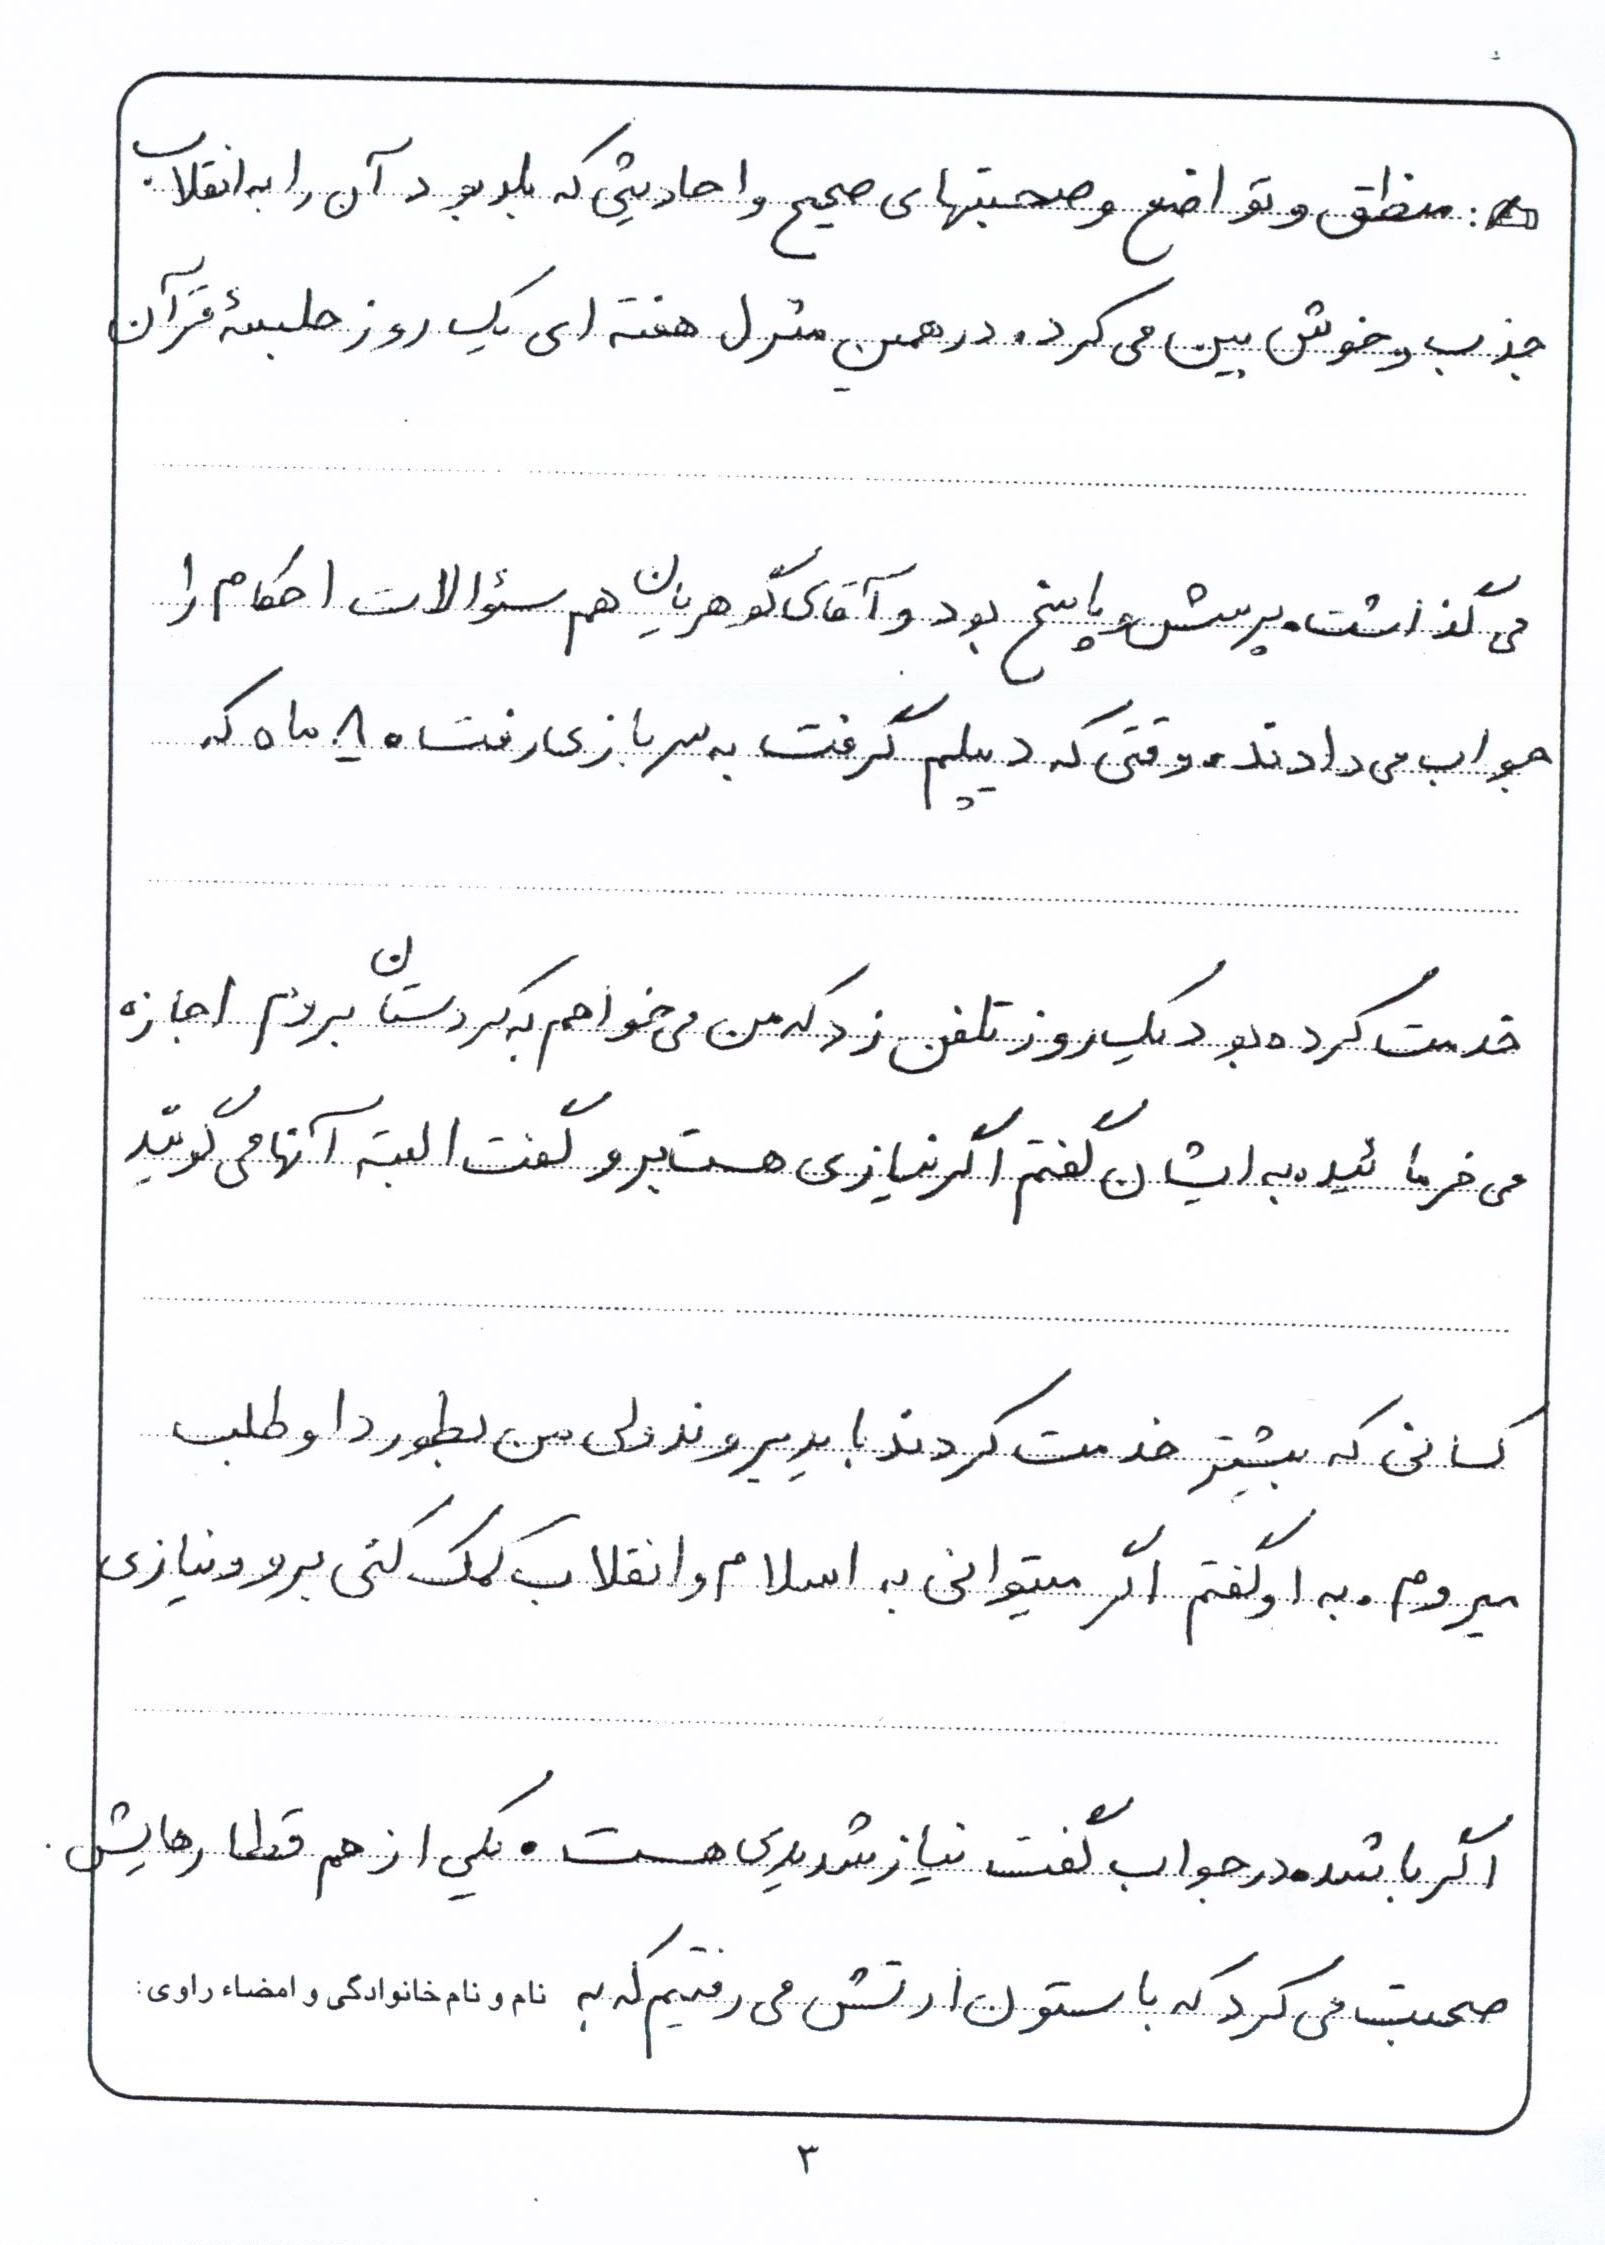 ✍: منطق و تواضع و صحبتهای صحیح و احادیثی که بلد بود آن را به انقلاب
جذب و خوش بین می کرد. در همین منزل هفته ای یک روز جلسۀ قرآن
می گذاشت. پرسش و پاسخ بود و آقای گوهریان هم سئوالات احکام را
جواب می دادند. وقتی که دیپلم گرفت به سربازی رفت. ۸ ماه که
خدمت کرده بود یک روز تلفن زد که من می خواهم به کردستان بروم اجازه
می فرمائید. به ایشان گفتم اگر نیازی هست برو گفت البته آنها می گویند
کسانی که بیشتر خدمت کردند باید بروند ولی من بطور داوطلب
میروم. به او گفتم اگر میتوانی به اسلام و انقلاب کمک کنی برو و نیازی
اگر باشد. در جواب گفت نیاز شدیدی هست. یکی از هم قطارهایش
صحبت می کرد که با ستون ارتش می رفتیم که به نام و نام خانوادگی و امضاء راوی:
۳